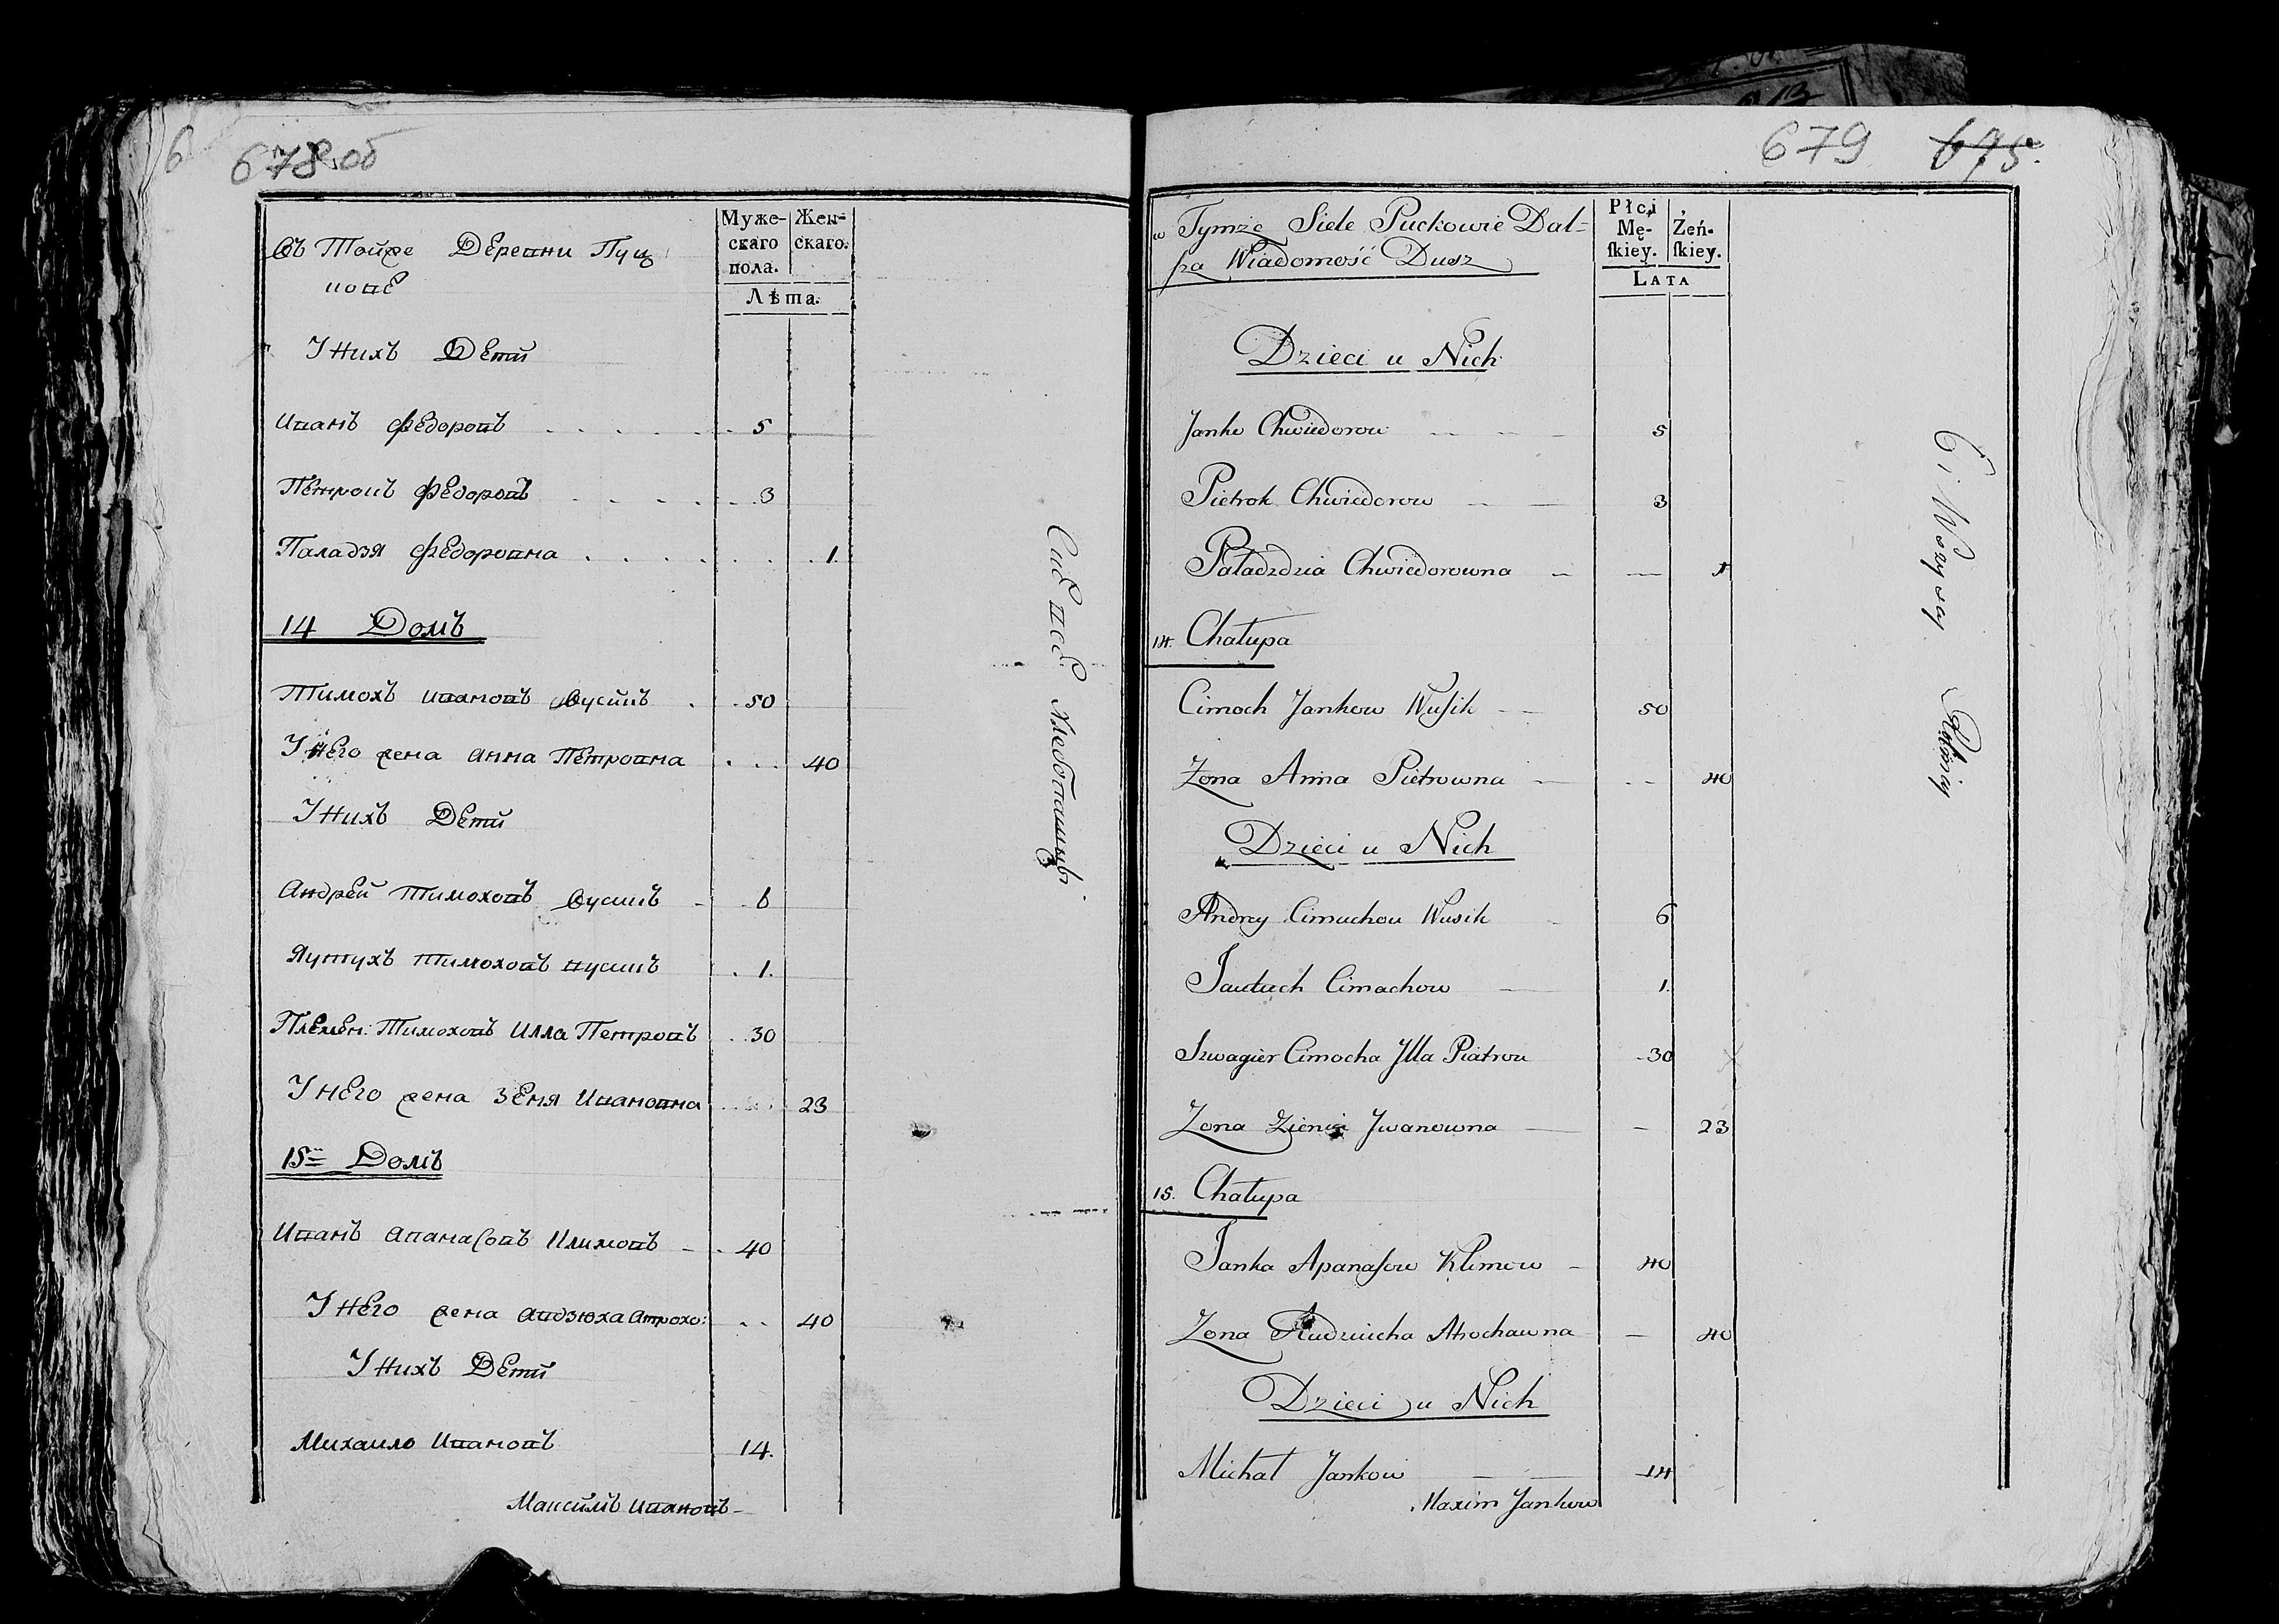 678 об
Муже-
скаго
пола.
Жен-
скаго.
Лѣта.
Въ Тойже Деревни Пуц
ковѣ
У Нихъ Дети
Иванъ Федоровъ 5
Петрокъ Федоровъ 3
Паладзя Федоровна 1.
14 Домъ
Тимохъ Ивановъ Вусикъ 50
У Него жена Анна Петровна 40
У Нихъ Дети
Андрей Тимоховъ Вусикъ 6
Яутухъ Тимоховъ Вусикъ 1.
Племен: Тимоховъ Илла Петровъ 30
У Него жена Зеня Ивановна 23
15й Домъ
Иванъ Апанасовъ Климовъ 40
У Него жена Авдзюха Атрохо: 40
У Нихъ Дети
Михаило Ивановъ 14.
Максимъ Ивановъ
Сие все Хлебопашцы.
679 675.
Płci
Mę-
skiey.
Żeń-
skiey.
LATA
w Tymże Siele Puckowie Dal-
sza Wiadomość Dusz
Dzieci u Nich
Janko Chwiedorow 5
Pietrok Chwiedorow 3
Paładzdzia Chwiedorowna 1
14. Chałupa
Cimoch Jankow Wusik 50
Żona Anna Pietrowna 40
Dzieci u Nich
Andrey Cimuchou Wusik 6
Jautuch Cimachow 1.
Szwagier Cimocha Jlla Piatrou 30
Żona Zienia Jwanowna 23
15. Chałupa
Janka Apanasow Klimow 40
Żona Audziucha Atrochawna 40
Dzieci u Nich
Michał Jankow 14
Maxim Jankow
Ci Wszyscy Rolnicy